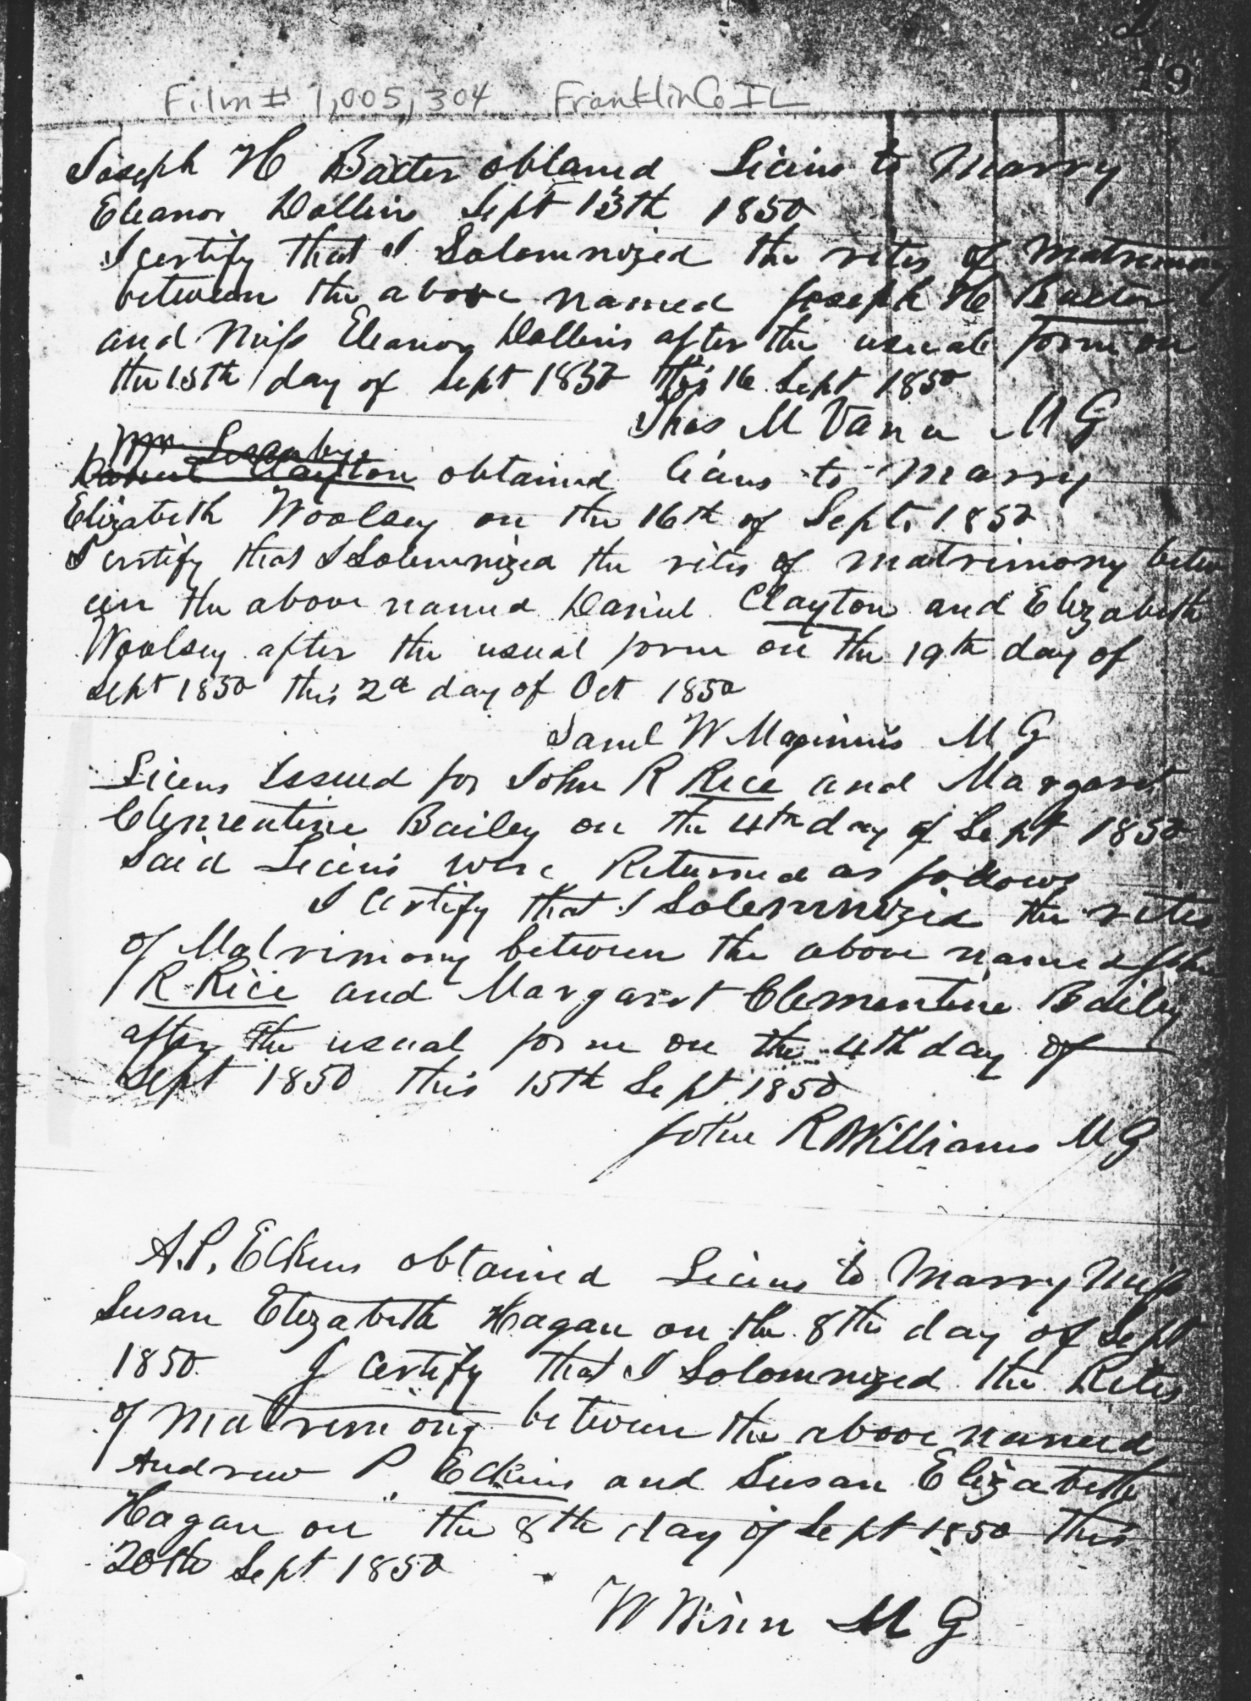 19
Film # 1,005,304 Franklin Co IL
Joseph H Baxter obtaned Licins to Marry
Eleanor Dollins Sept 13th 1850
I certify that I Solomnized the rites of Matrimony
between the above named Joseph H Baxter
and Miss Eleanor Dollins after the usual form on
the 15th day of Sept 1850 this 16 Sept 1850
Thos M Vann M G
Clayton obtained licins to Marry
Elizabeth Woolsey on the 16th of Sept. 1850
I certify that I Solemnized the rites of matrimony betw
een the above named Daniel Clayton and Elizabeth
Woolsey after the usual form on the 19th day of
Sept 1850 this 2d day of Oct 1850
Saml W M G
Licens Issued for John R Rice and Margaret
Clementine Bailey on the 4th day of Sept 1850
Said Licins were Returned as follows
I certify that I Solemnized the rites
of Matrimony between the above named John
R Rice and Margaret Clementine Bailey
after the usual form on the 4th day of
Sept 1850 this 15th Sept 1850
John R Williams M G
A. P. Eckins obtained Licins to Marry Miss
Susan Elizabeth Hagan on the 8th day of Sept
1850 I certify that I Solomnized the Rites
of Matrimony between the above named
Andrew P. Eckins and Susan Elizabeth
Hagan on the 8th day of Sept 1850 this
20th Sept 1850
W M G